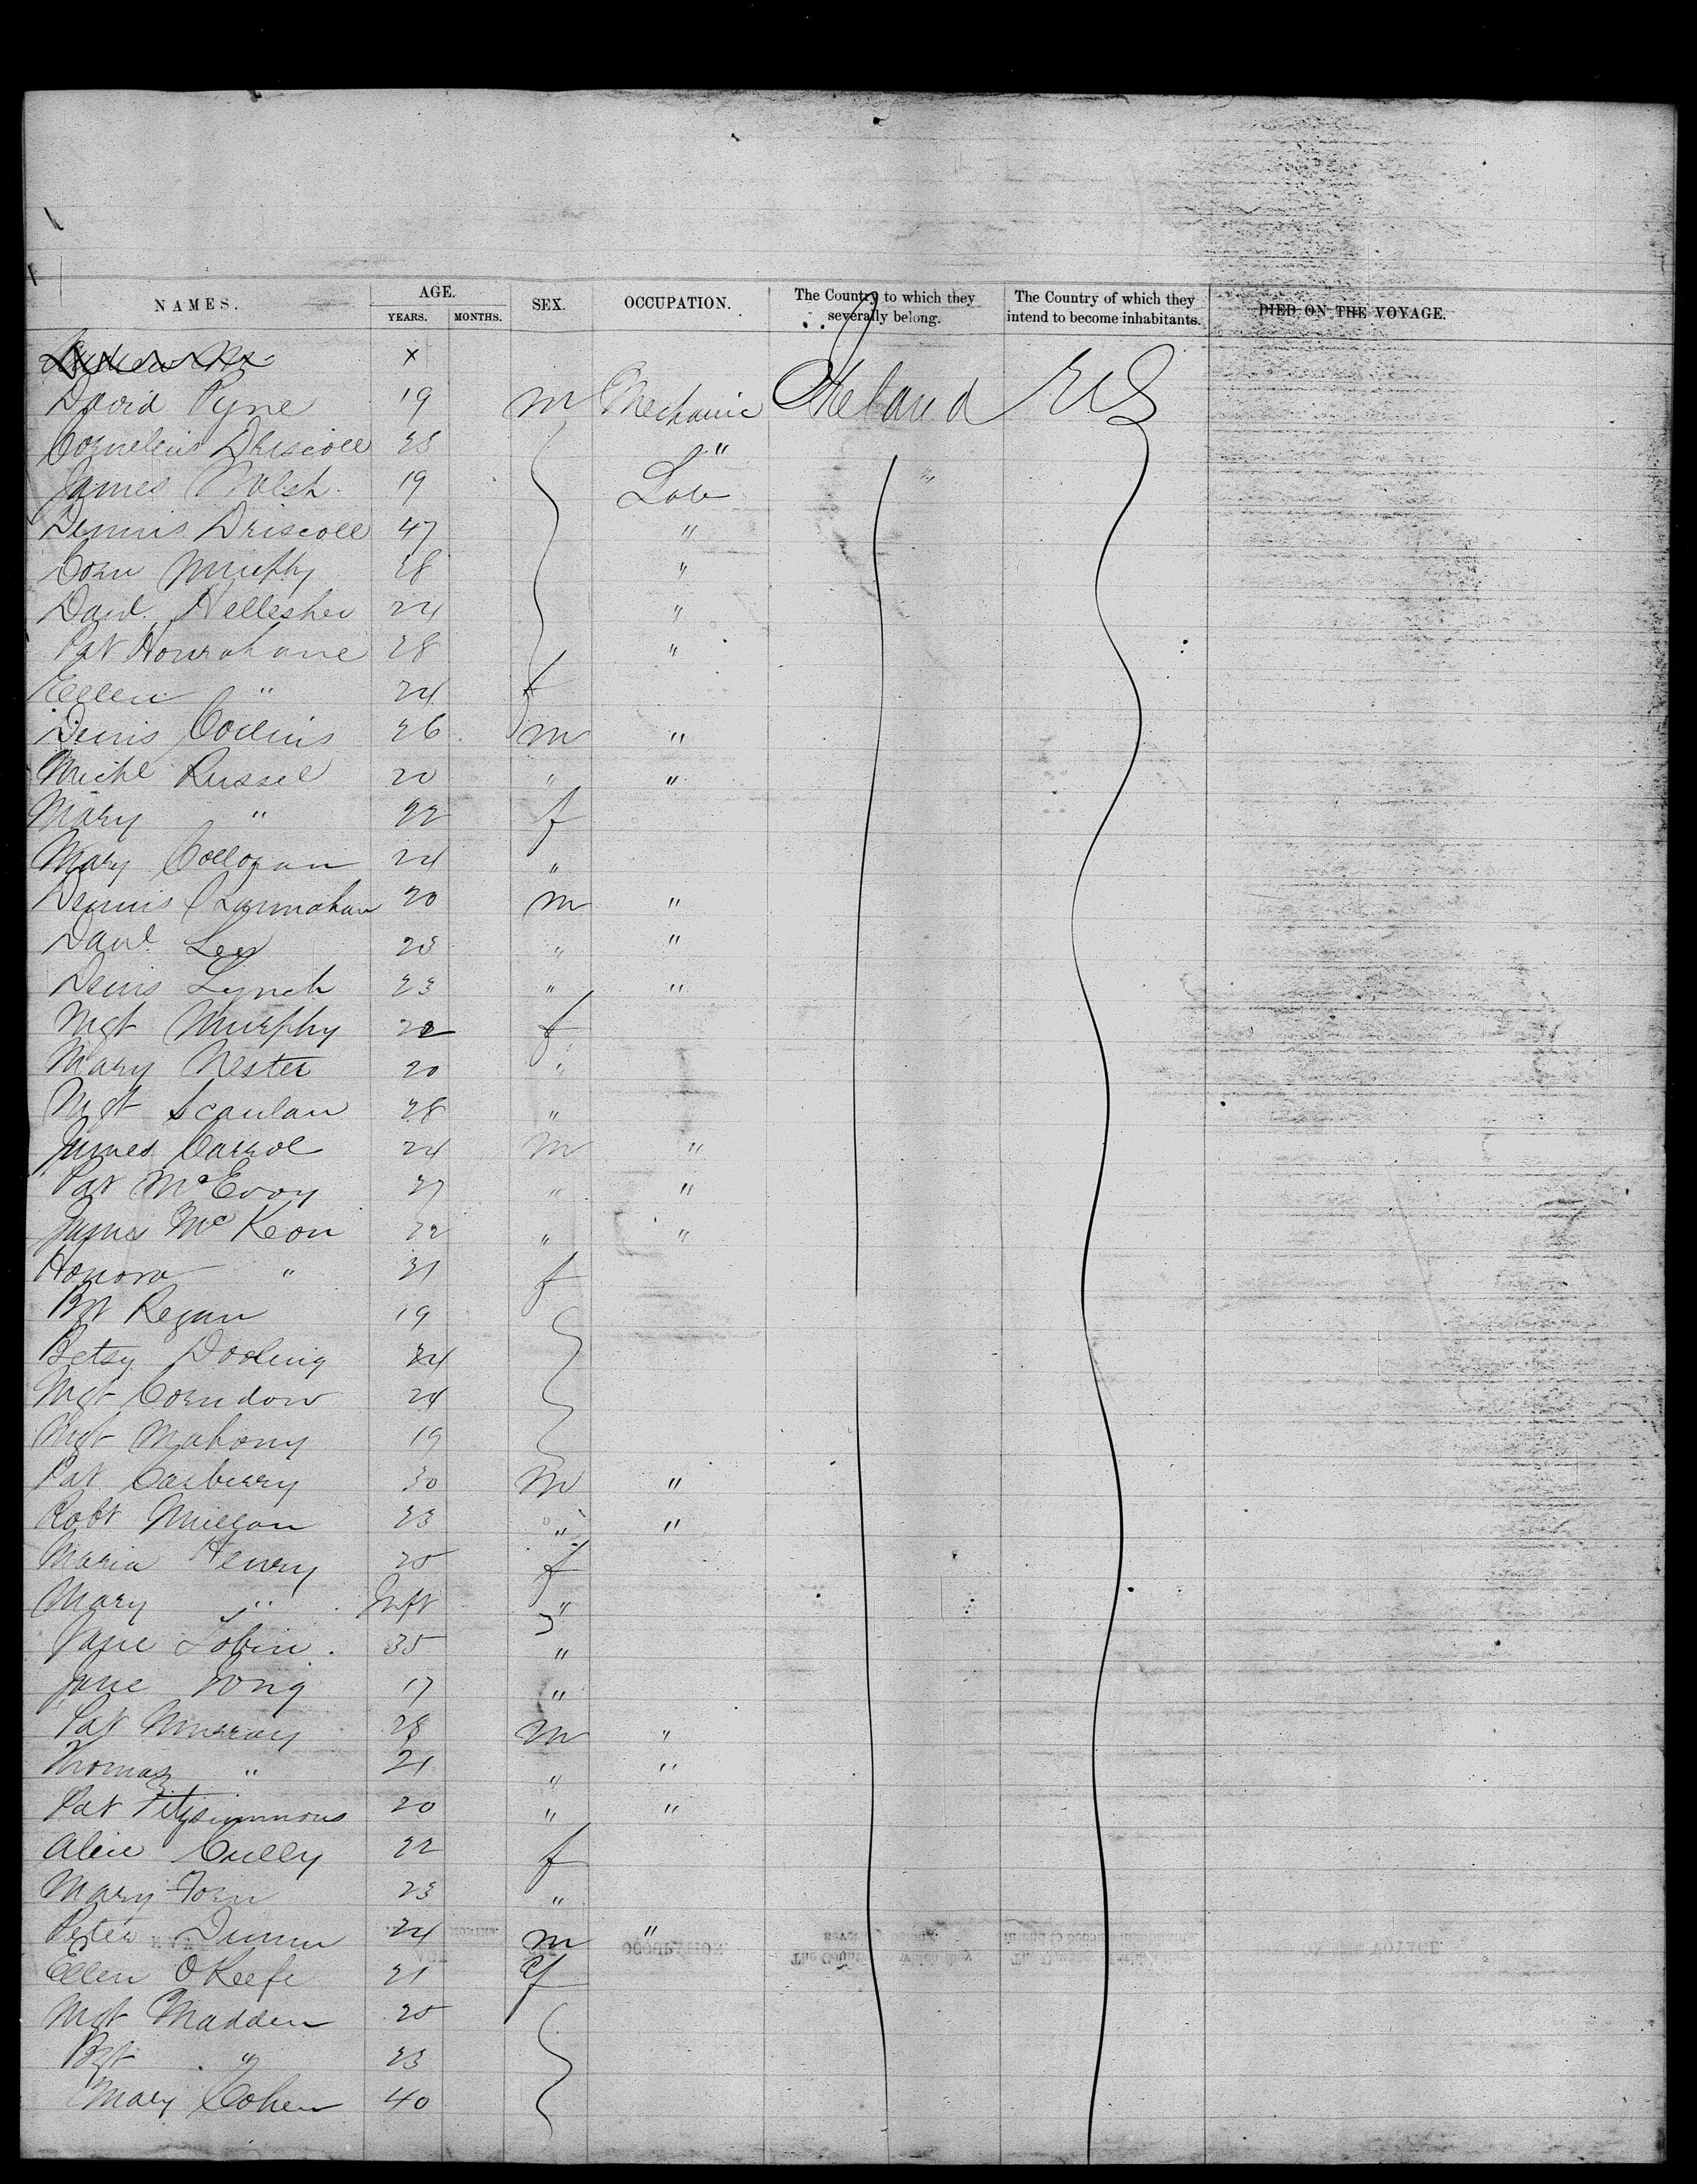 NAMES. AGE. SEX. OCCUPATION. The Country to which they severally belong. The Country of which they intend to become inhabitants. DIED ON THE VOYAGE.
YEARS. MONTHS.
x
David Pyne 19 m Mechanic Ireland US
Cornelius Driscoll 23 "
James Walsh 19 Lab "
Dennis Driscoll 47 "
Corn Murphy 28 "
Danl. Kellesher 24 "
Pat Hourahane 28 "
Ellen " 24 f
Denis Collins 26 m "
Michl Russel 20 " "
Mary " 22 f
Mary Collogan 24 "
Dennis 20 m "
Danl. Lee 23 " "
Denis Lynch 23 " "
Mgt Murphy 22 f
Mary Nester 20 "
Mgt Scanlan 28 "
James Carrol 24 m "
Pat McEvoy 27 " "
James McKeon 22 " "
Honora " 31 f
Bgt Regan 19
Betsy Dooling 24
Mgt Corndon 24
Mgt Mahony 19
Pat Carberry 30 m "
Robt Millon 23 " "
Maria Henry 25 f
Mary " Inft "
Jane Tobin 35 "
Jane 17 "
Pat Murray 28 m "
Thomas " 21 " "
Pat Fitzsimmons 20 " "
Alice Cully 22 f
Mary 23 "
Peter Dunn 24 m "
Ellen OKeefe 21 f
Mgt Madden 25
Bgt " 23
Mary Cohen 40